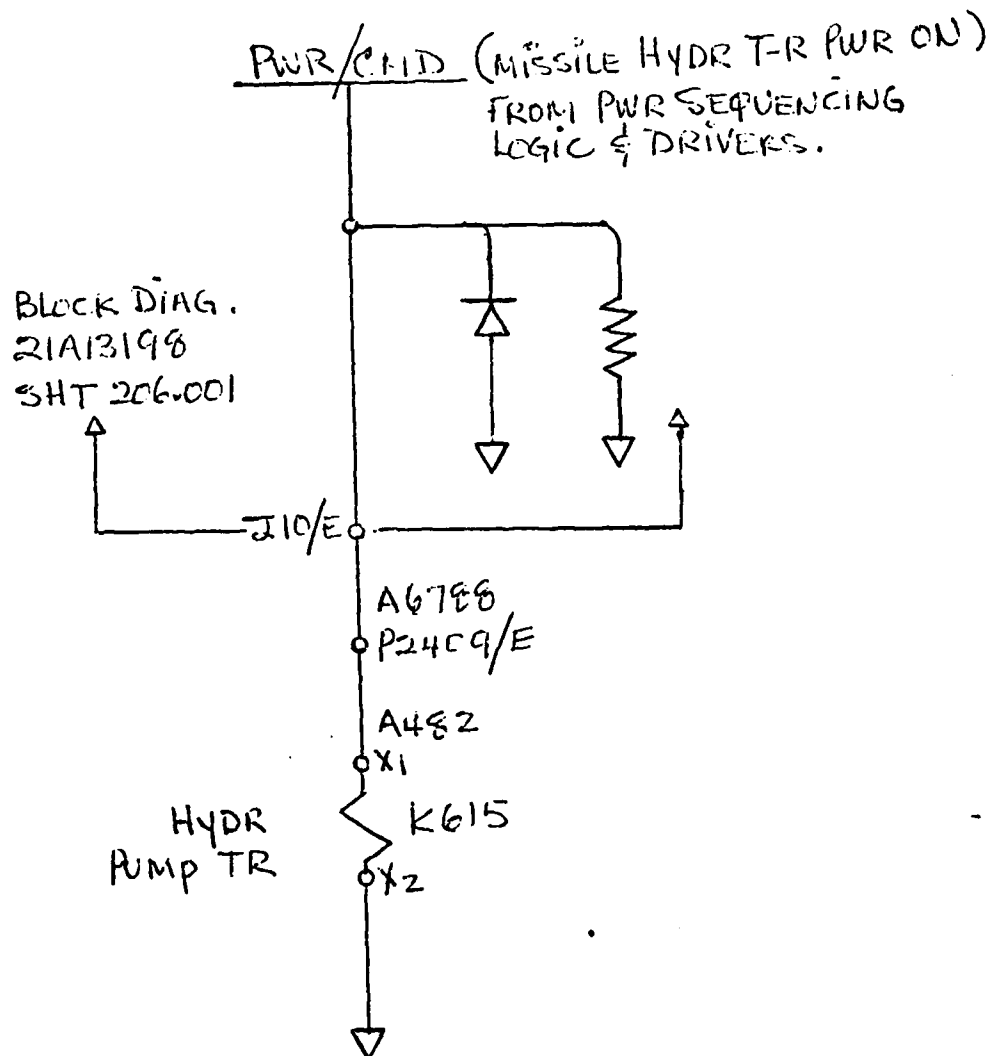 PWR/CMD (MISSILE HYDR T-R PWR ON)
FROM PWR SEQUENCING
LOGIC & DRIVERS.
BLOCK DIAG.
21A13198
SHT 206.001
J10/E
A6788
P2409/E
A482
X1
HYDR
PUMP TR
K615
X2